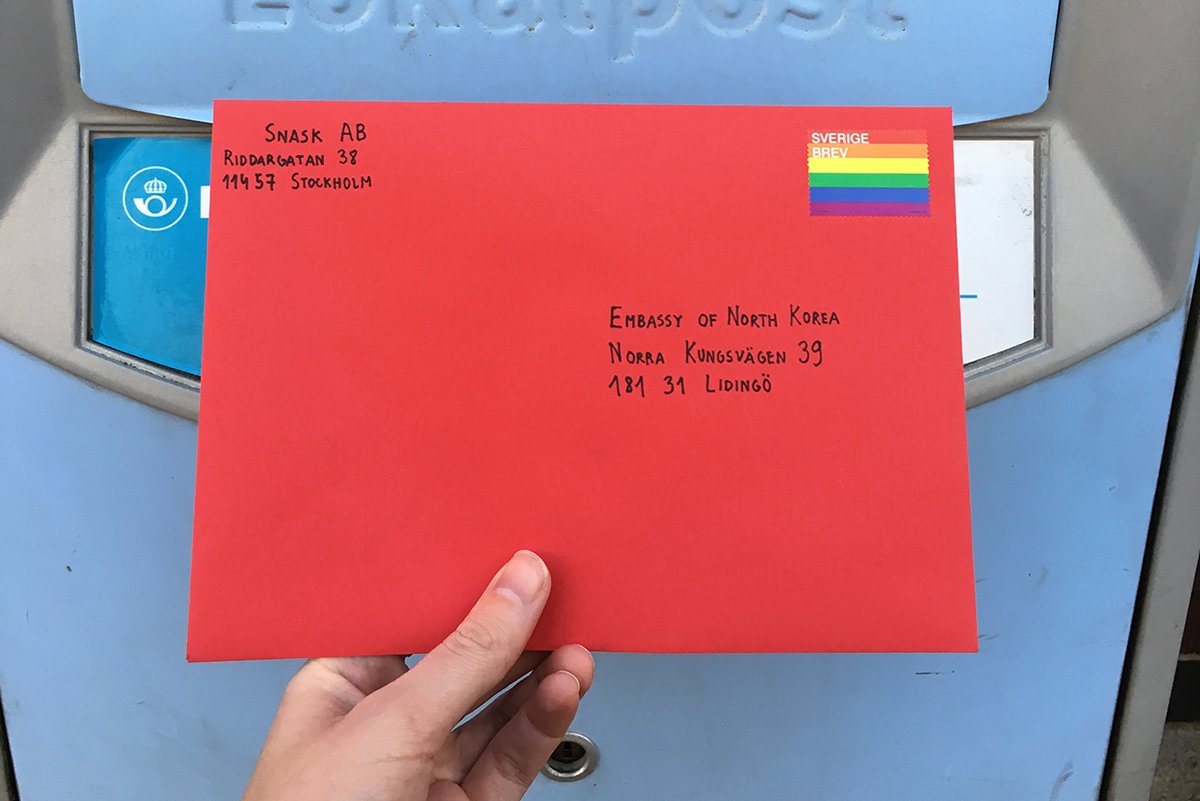 Lokalpost
SNASK AB
RIDDARGATAN 38
114 57 STOCKHOLM
SVERIGE
BREV
EMBASSY OF NORTH KOREA
NORRA KUNGSVÄGEN 39
181 31 LIDINGÖ